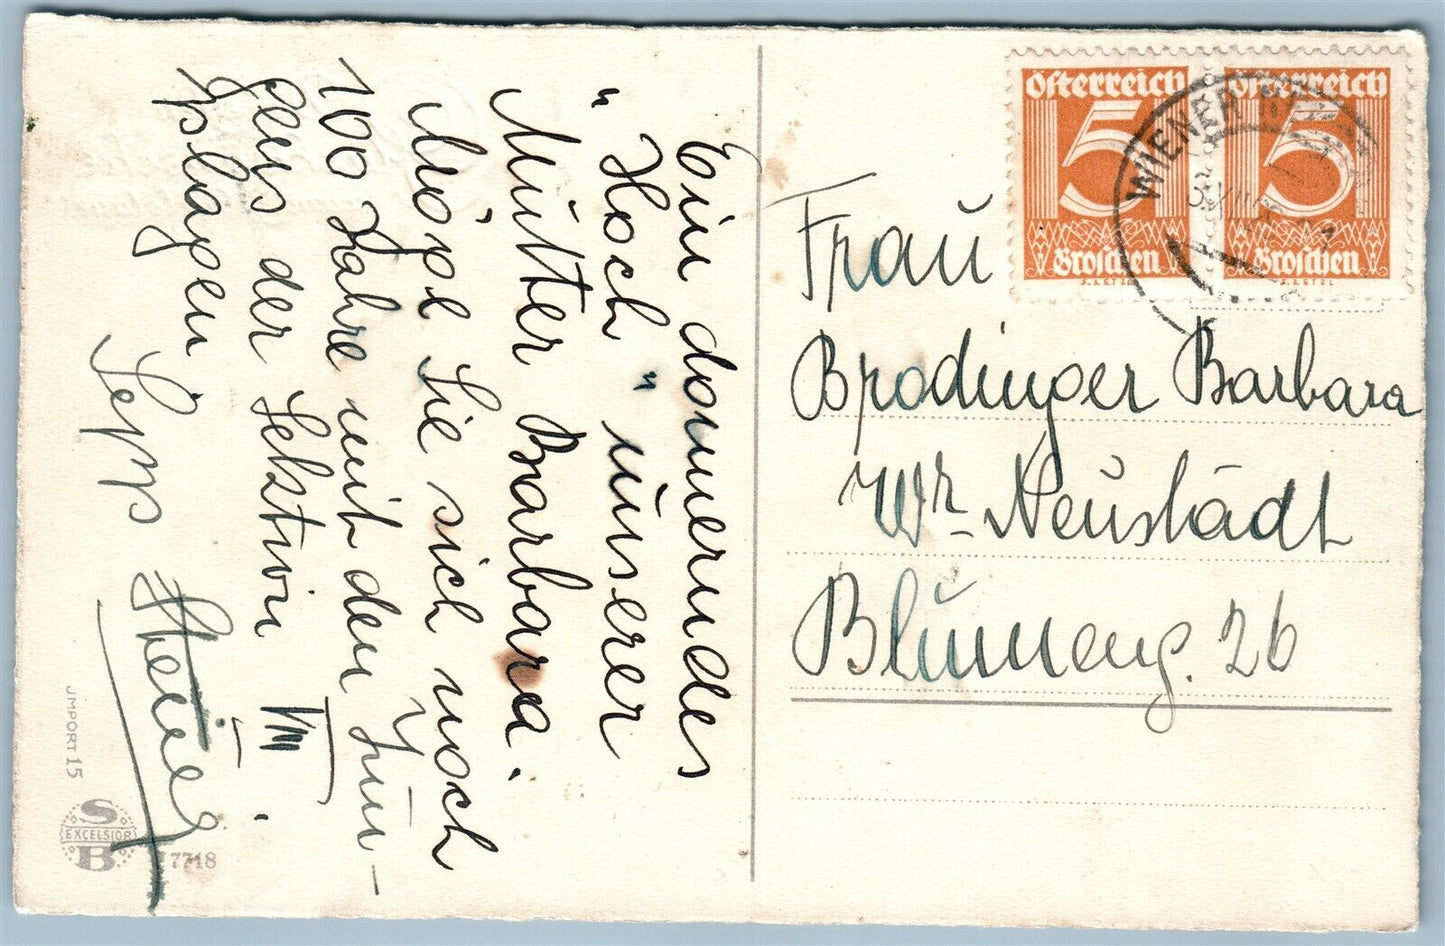 Ein donnerndes
"Hoch" unserer
Mutter Barbara.
Möge Sie sich noch
100 Jahre mit den Jün-
gers der Sektion VIII.
plagen
Sepp
Österreich
5
Groschen
Österreich
5
Groschen
WIENER
Frau
Brodinger Barbara
Wr. Neustadt
Blumeng. 26
JMPORT 15
S
EXCELSIOR
B
7718